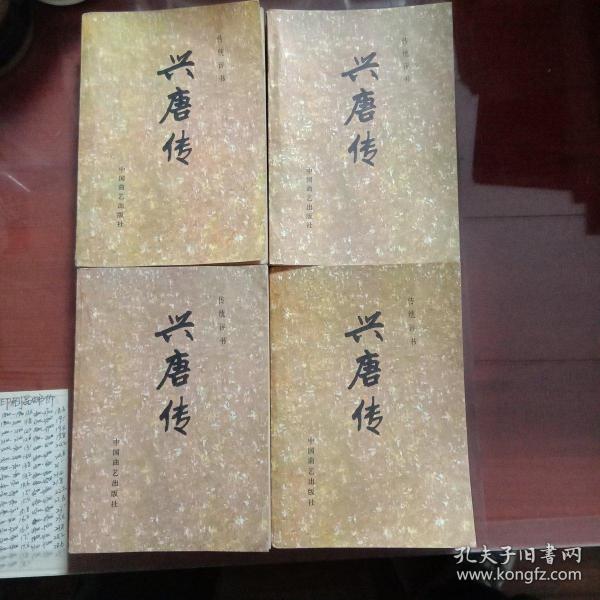 传统评书
兴唐传
中国曲艺出版社
传统评书
兴唐传
中国曲艺出版社
传统评书
兴唐传
中国曲艺出版社
传统评书
兴唐传
中国曲艺出版社
孔夫子旧书网
www.kongfz.com